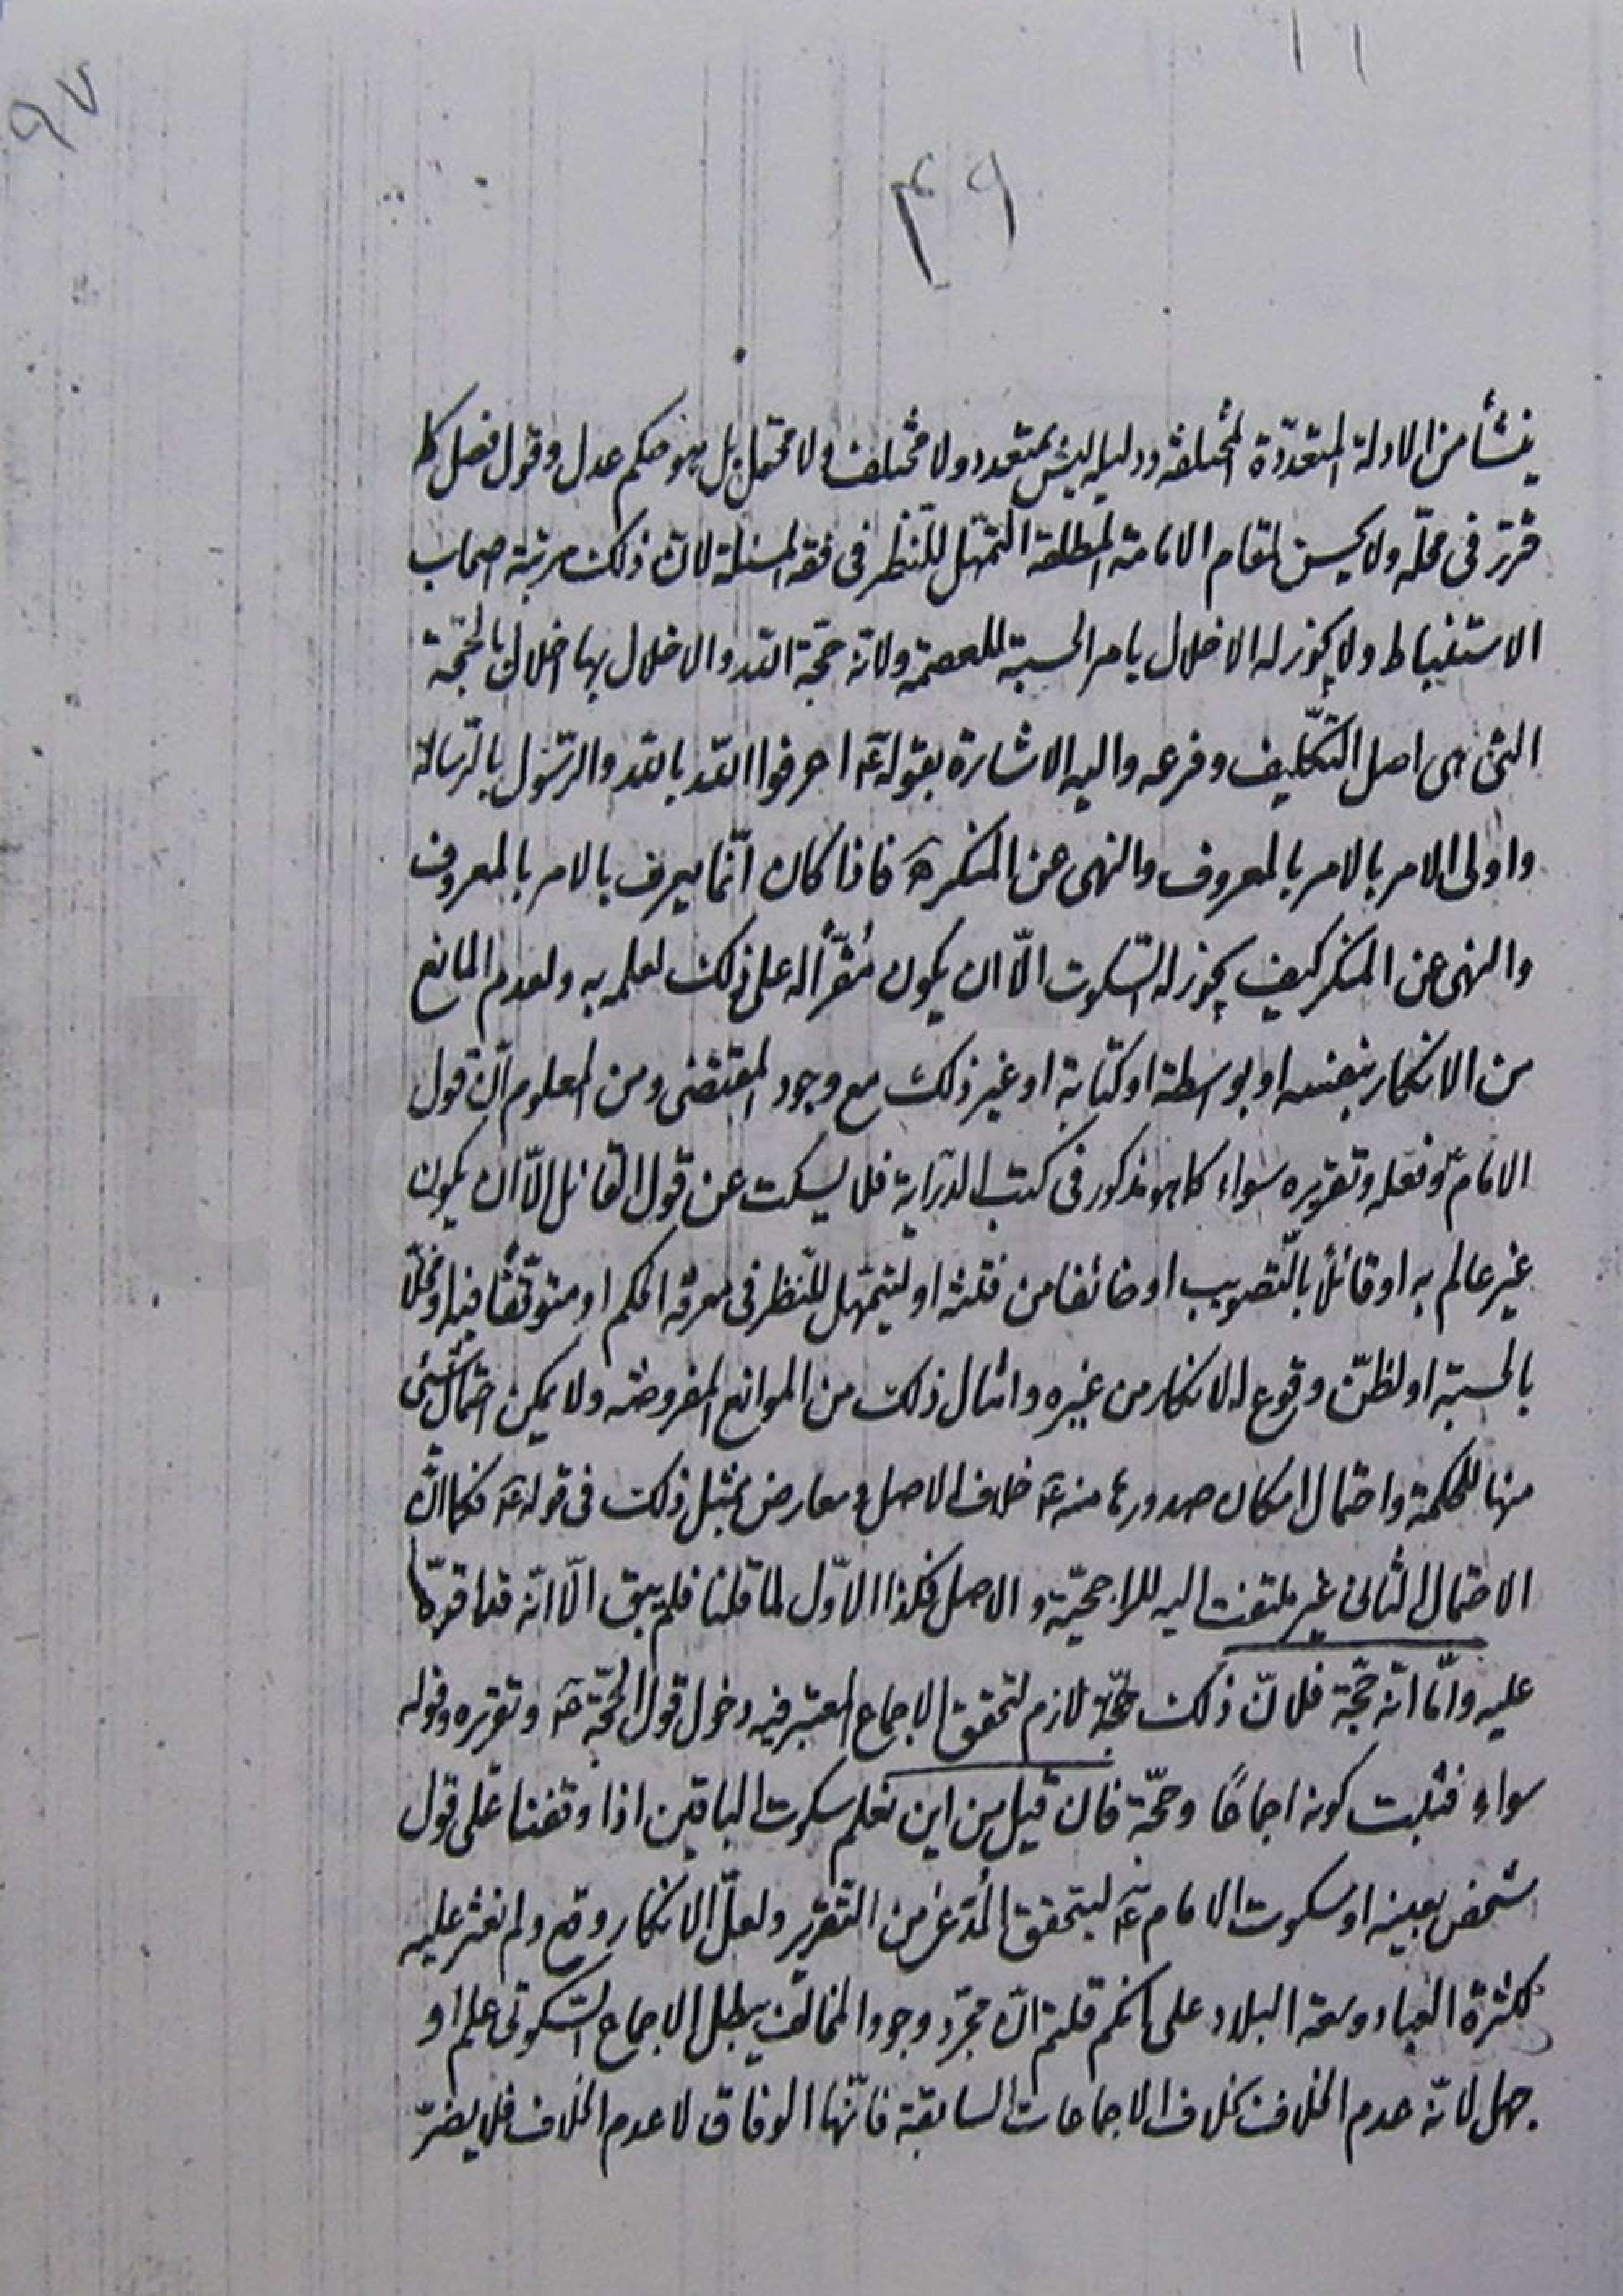 ٩٧
٤٩
ينشأ من الادلة المتعدّدة المختلفة ودليله ليس بمتعدد ولا مختلف ولا محتمل بل هو حكم عدل وقول فصل كما
قرّر فى محلّه ولا يحسن لمقام الامامة المطلقة التمهّل للنّظر فى فقه المسئلة لانّ ذلك مرتبة اصحاب
الاستنباط ولا يجوز له الاخلال بامر الحسبة للعصمة ولانّه حجّة الله والاخلال بها اخلال بالحجّة
التى هى اصل التّكليف وفرعه واليه الاشارة بقوله ع اعرفوا الله بالله والرّسول بالرّسالة
واولى الامر بالامر بالمعروف والنهى عن المنكر ه فاذا كان انّما يعرف بالامر بالمعروف
والنهى عن المنكر كيف يجوز له السّكوت الّا ان يكون مُقرّاً له على ذلك لعلمه به ولعدم المانع
من الانكار بنفسه او بواسطة او كتابة او غير ذلك مع وجود المقتضى ومن المعلوم انّ قول
الامام ع وفعله وتقريره سواء كما هو مذكور فى كتب الدّراية فلا يسكت عن قول القائل الّا ان يكون
غير عالم به او قائلاً بالتّصويب او خائفا من فتنة او ليتمهّل للنّظر فى معرفة الحكم او متوقّفاً فيه او مخلّا
بالحسبة او لظنّ وقوع الانكار من غيره وامثال ذلك من الموانع المفروضة ولا يمكن احتمال شئ
منها للحكمة واحتمال امكان صدورها منه ع خلاف الاصل و معارض بمثل ذلك فى قوله ع فكما انّ
الاحتمال الثانى غير ملتفت اليه للراجحيّة و الاصل فكذا الاوّل لما قلنا فلم يبق الّا انّه قد اقرّها
عليه وامّا انّه حجّة فلانّ ذلك حجّة لازم لتحقق الاجماع المعتبر فيه دخول قول الحجّة ع وتقريره وقوله
سواء فثبت كونه اجماعًا وحجّة فان قيل من اين نعلم سكوت الباقين اذا وقفنا على قول
شخص بعينه او سكوت الامام ع ليتحقق المُدّعى من التّقرير ولعلّ الانكار وقع ولم نعثر عليه
لكثرة العباد وسعة البلاد على انكم قلتم انّ مجرّد وجود المخالف يبطل الاجماع السّكوتى علم او
جهل لانّه عدم الخلاف بخلاف الاجماعات السابقة فانّها الوفاق لا عدم الخلاف فلا يضرّ